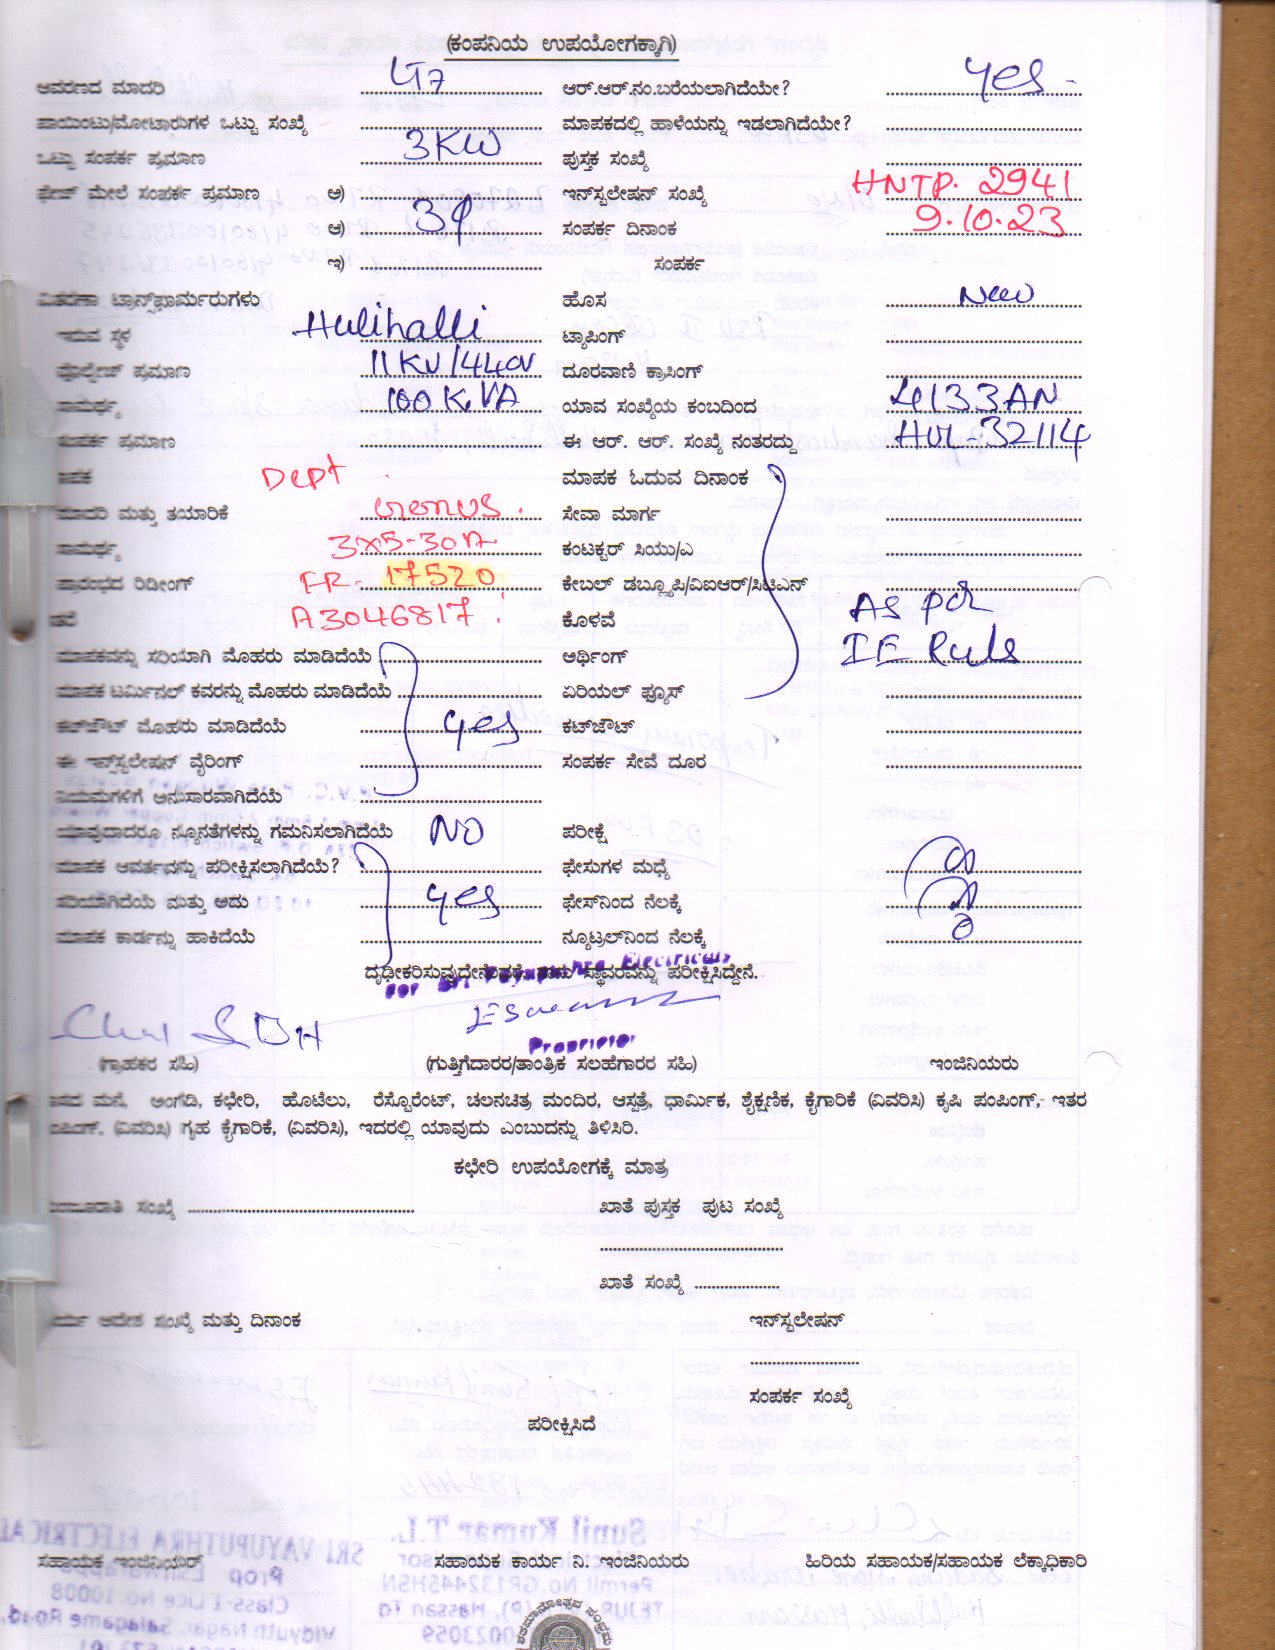 (ಕಂಪನಿಯ ಉಪಯೋಗಕ್ಕಾಗಿ)
ಆವರಣದ ಮಾದರಿ LT7 ಆರ್.ಆರ್.ನಂ.ಬರೆಯಲಾಗಿದೆಯೇ? yes -
ಪಾಯಿಂಟು/ಮೋಟಾರುಗಳ ಒಟ್ಟು ಸಂಖ್ಯೆ ಮಾಪಕದಲ್ಲಿ ಹಾಳೆಯನ್ನು ಇಡಲಾಗಿದೆಯೇ?
ಒಟ್ಟು ಸಂಪರ್ಕ ಪ್ರಮಾಣ 3KW ಪುಸ್ತಕ ಸಂಖ್ಯೆ
ಫೇಜ್ ಮೇಲೆ ಸಂಪರ್ಕ ಪ್ರಮಾಣ ಅ) ಇನ್‌ಸ್ಟಲೇಷನ್ ಸಂಖ್ಯೆ HNTP. 2941
ಆ) 3φ ಸಂಪರ್ಕ ದಿನಾಂಕ 9.10.23
ಇ) ಸಂಪರ್ಕ
ವಿತರಣಾ ಟ್ರಾನ್ಸ್‌ಫಾರ್ಮರುಗಳು ಹೊಸ New
ಇರುವ ಸ್ಥಳ Hulihalli ಟ್ಯಾಪಿಂಗ್
ವೋಲ್ಟೇಜ್ ಪ್ರಮಾಣ 11KV/440V ದೂರವಾಣಿ ಕ್ರಾಸಿಂಗ್
ಸಾಮರ್ಥ್ಯ 100 KVA ಯಾವ ಸಂಖ್ಯೆಯ ಕಂಬದಿಂದ 4133AN
ಸಂಪರ್ಕ ಪ್ರಮಾಣ ಈ ಆರ್. ಆರ್. ಸಂಖ್ಯೆ ನಂತರದ್ದು HUL-32114
Dept ಮಾಪಕ ಓದುವ ದಿನಾಂಕ
ಮಾದರಿ ಮತ್ತು ತಯಾರಿಕೆ Genus. ಸೇವಾ ಮಾರ್ಗ
ಸಾಮರ್ಥ್ಯ 3X5-30A ಕಂಟಕ್ಟರ್ ಸಿಯು/ಎ
ಪ್ರಾರಂಭದ ರಿಡೀಂಗ್ FR- 17520 ಕೇಬಲ್ ಡಬ್ಲ್ಯೂಪಿ/ವಿಐಆರ್/ಸಿಟಿಎನ್
A3046817 ಕೊಳವೆ As per
ಮಾಪಕವನ್ನು ಸರಿಯಾಗಿ ಮೊಹರು ಮಾಡಿದೆಯೆ ಅರ್ಥಿಂಗ್ IE Rule
ಮಾಪಕ ಟರ್ಮಿನಲ್ ಕವರನ್ನು ಮೊಹರು ಮಾಡಿದೆಯೆ ಏರಿಯಲ್ ಫ್ಯೂಸ್
ಕಟ್‌ಔಟ್ ಮೊಹರು ಮಾಡಿದೆಯೆ yes ಕಟ್‌ಔಟ್
ಈ ಇನ್‌ಸ್ಟಲೇಷನ್ ವೈರಿಂಗ್ ಸಂಪರ್ಕ ಸೇವೆ ದೂರ
ನಿಯಮಗಳಿಗೆ ಅನುಸಾರವಾಗಿದೆಯೆ
ಯಾವುದಾದರೂ ನ್ಯೂನತೆಗಳನ್ನು ಗಮನಿಸಲಾಗಿದೆಯೆ NO ಪರೀಕ್ಷೆ
ಮಾಪಕ ಆವರ್ತವನ್ನು ಪರೀಕ್ಷಿಸಲಾಗಿದೆಯೆ? ಫೇಸುಗಳ ಮಧ್ಯೆ
ಸರಿಯಾಗಿದೆಯೆ ಮತ್ತು ಅದು yes ಫೇಸ್‌ನಿಂದ ನೆಲಕ್ಕೆ
ಮಾಪಕ ಕಾರ್ಡನ್ನು ಹಾಕಿದೆಯೆ ನ್ಯೂಟ್ರಲ್‌ನಿಂದ ನೆಲಕ್ಕೆ
ದೃಢೀಕರಿಸುವುದೇನೆಂದರೆ, ನಾನು ಸ್ಥಾವರವನ್ನು ಪರೀಕ್ಷಿಸಿದ್ದೇನೆ.
For Sri Vayuputhra Electricals
Proprietor
(ಗ್ರಾಹಕರ ಸಹಿ) (ಗುತ್ತಿಗೆದಾರರ/ತಾಂತ್ರಿಕ ಸಲಹೆಗಾರರ ಸಹಿ) ಇಂಜಿನಿಯರು
ವಾಸದ ಮನೆ, ಅಂಗಡಿ, ಕಛೇರಿ, ಹೊಟೆಲು, ರೆಸ್ಟೊರೆಂಟ್, ಚಲನಚಿತ್ರ ಮಂದಿರ, ಆಸ್ಪತ್ರೆ, ಧಾರ್ಮಿಕ, ಶೈಕ್ಷಣಿಕ, ಕೈಗಾರಿಕೆ (ವಿವರಿಸಿ) ಕೃಷಿ ಪಂಪಿಂಗ್, ಇತರ
ಪಂಪಿಂಗ್, (ವಿವರಿಸಿ) ಗೃಹ ಕೈಗಾರಿಕೆ, (ವಿವರಿಸಿ), ಇದರಲ್ಲಿ ಯಾವುದು ಎಂಬುದನ್ನು ತಿಳಿಸಿರಿ.
ಕಛೇರಿ ಉಪಯೋಗಕ್ಕೆ ಮಾತ್ರ
ಮಂಜೂರಾತಿ ಸಂಖ್ಯೆ ಖಾತೆ ಪುಸ್ತಕ ಪುಟ ಸಂಖ್ಯೆ
ಖಾತೆ ಸಂಖ್ಯೆ
ಕಾರ್ಯ ಆದೇಶ ಸಂಖ್ಯೆ ಮತ್ತು ದಿನಾಂಕ ಇನ್‌ಸ್ಟಲೇಷನ್
ಸಂಪರ್ಕ ಸಂಖ್ಯೆ
ಪರೀಕ್ಷಿಸಿದೆ
ಸಹಾಯಕ ಇಂಜಿನಿಯರ್ ಸಹಾಯಕ ಕಾರ್ಯ ನಿ. ಇಂಜಿನಿಯರು ಹಿರಿಯ ಸಹಾಯಕ/ಸಹಾಯಕ ಲೆಕ್ಕಾಧಿಕಾರಿ